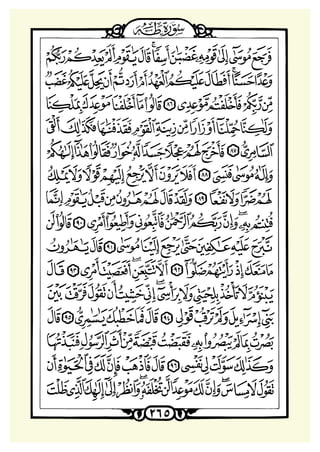 سُورَةُ طٰهٰ
فَرَجَعَ مُوسَىٰ إِلَىٰ قَوْمِهِ غَضْبَٰنَ أَسِفًا قَالَ يَٰقَوْمِ أَلَمْ يَعِدْكُمْ رَبُّكُمْ
وَعْدًا حَسَنًا أَفَطَالَ عَلَيْكُمُ الْعَهْدُ أَمْ أَرَدتُّمْ أَن يَحِلَّ عَلَيْكُمْ غَضَبٌ
مِّن رَّبِّكُمْ فَأَخْلَفْتُم مَّوْعِدِي ٨٦ قَالُوا مَا أَخْلَفْنَا مَوْعِدَكَ بِمَلْكِنَا
وَلَٰكِنَّا حُمِّلْنَا أَوْزَارًا مِّن زِينَةِ الْقَوْمِ فَقَذَفْنَٰهَا فَكَذَٰلِكَ أَلْقَى
السَّامِرِيُّ ٨٧ فَأَخْرَجَ لَهُمْ عِجْلًا جَسَدًا لَّهُ خُوَارٌ فَقَالُوا هَٰذَا إِلَٰهُكُمْ
وَإِلَٰهُ مُوسَىٰ فَنَسِيَ ٨٨ أَفَلَا يَرَوْنَ أَلَّا يَرْجِعُ إِلَيْهِمْ قَوْلًا وَلَا يَمْلِكُ
لَهُمْ ضَرًّا وَلَا نَفْعًا ٨٩ وَلَقَدْ قَالَ لَهُمْ هَٰرُونُ مِن قَبْلُ يَٰقَوْمِ إِنَّمَا
فُتِنتُم بِهِ وَإِنَّ رَبَّكُمُ الرَّحْمَٰنُ فَاتَّبِعُونِي وَأَطِيعُوا أَمْرِي ٩٠ قَالُوا لَن
نَّبْرَحَ عَلَيْهِ عَٰكِفِينَ حَتَّىٰ يَرْجِعَ إِلَيْنَا مُوسَىٰ ٩١ قَالَ يَٰهَٰرُونُ
مَا مَنَعَكَ إِذْ رَأَيْتَهُمْ ضَلُّوا ٩٢ أَلَّا تَتَّبِعَنِ أَفَعَصَيْتَ أَمْرِي ٩٣ قَالَ
يَبْنَؤُمَّ لَا تَأْخُذْ بِلِحْيَتِي وَلَا بِرَأْسِي إِنِّي خَشِيتُ أَن تَقُولَ فَرَّقْتَ بَيْنَ
بَنِي إِسْرَٰءِيلَ وَلَمْ تَرْقُبْ قَوْلِي ٩٤ قَالَ فَمَا خَطْبُكَ يَٰسَٰمِرِيُّ ٩٥ قَالَ
بَصُرْتُ بِمَا لَمْ يَبْصُرُوا بِهِ فَقَبَضْتُ قَبْضَةً مِّنْ أَثَرِ الرَّسُولِ فَنَبَذْتُهَا
وَكَذَٰلِكَ سَوَّلَتْ لِي نَفْسِي ٩٦ قَالَ فَاذْهَبْ فَإِنَّ لَكَ فِي الْحَيَوٰةِ أَن
تَقُولَ لَا مِسَاسَ وَإِنَّ لَكَ مَوْعِدًا لَّن تُخْلَفَهُ وَانظُرْ إِلَىٰ إِلَٰهِكَ الَّذِي ظَلْتَ
٢٦٥